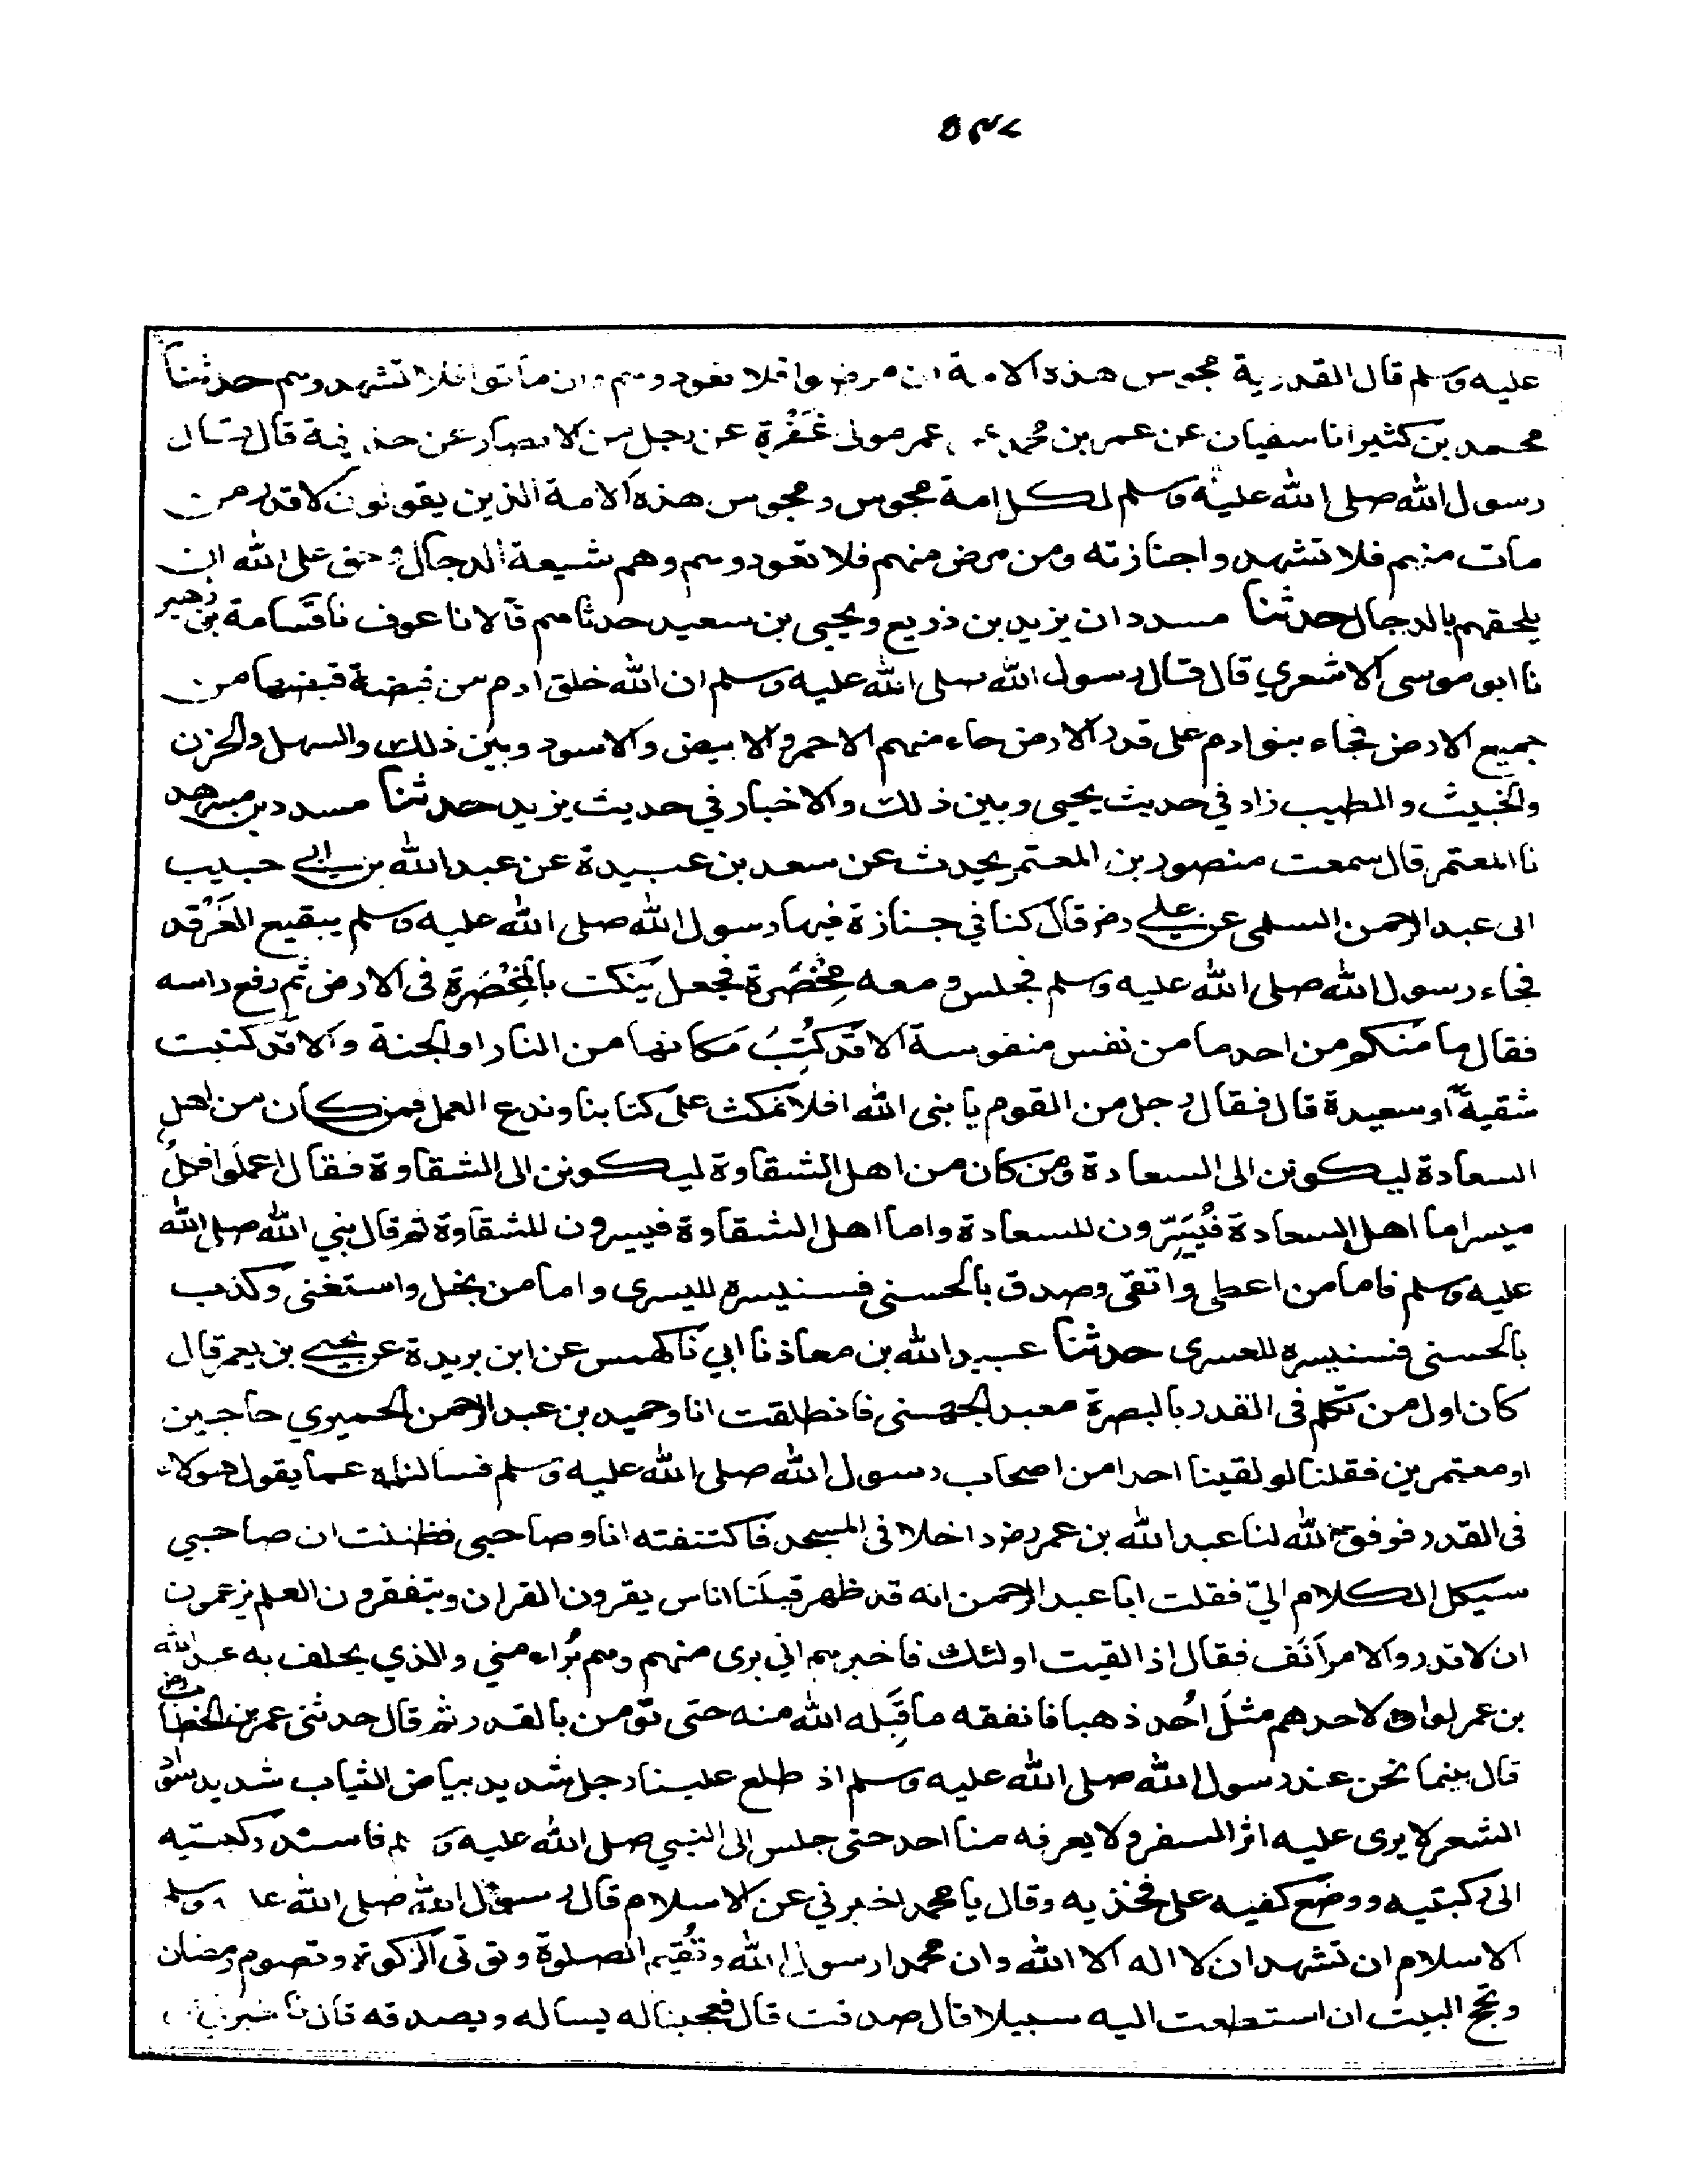 ٥٣٧
عليه وسلم قال القدرية مجوس هذه الامة ان مرضوا فلا تعودوهم وان ماتوا فلا تشهدوهم حدثنا
محمد بن كثير انا سفيان عن عمر بن محمد عن عمر مولى غُفْرة عن رجل من الانصار عن حذيفة قال قال
رسول الله صلى الله عليه وسلم لكل امة مجوس ومجوس هذه الامة الذين يقولون لا قدر من
مات منهم فلا تشهدوا جنازته ومن مرض منهم فلا تعودوهم وهم شيعة الدجال وحق على الله ان
يلحقهم بالدجال حدثنا مسدد ان يزيد بن زريع ويحيى بن سعيد حدثاهم قالا نا عوف نا قسامة بن زهير
نا ابو موسى الاشعري قال قال رسول الله صلى الله عليه وسلم ان الله خلق ادم من قبضة قبضها من
جميع الارض فجاء بنو ادم على قدر الارض جاء منهم الاحمر والابيض والاسود وبين ذلك والسهل والحزن
والخبيث والطيب زاد في حديث يحيى وبين ذلك والاخبار في حديث يزيد حدثنا مسدد بن مسرهد
نا المعتمر قال سمعت منصور بن المعتمر يحدث عن سعد بن عبيدة عن عبد الله بن حبيب
ابى عبد الرحمن السلمى عن علي رض قال كنا في جنازة فيها رسول الله صلى الله عليه وسلم ببقيع الغَرْقد
فجاء رسول الله صلى الله عليه وسلم فجلس ومعه مِخْصَرة فجعل يَنكت بالمِخْصَرة فى الارض ثم رفع راسه
فقال ما منكم من احد ما من نفس منفوسة الا قد كُتِبَ مكانها من النار او الجنة والا قد كتبت
شقيةً او سعيدة قال فقال رجل من القوم يا نبى الله افلا نمكث على كتابنا وندع العمل فمن كان من اهل
السعادة ليكونن الى السعادة ومن كان من اهل الشقاوة ليكونن الى الشقاوة فقال اعملوا فكلٌ
ميسر اما اهل السعادة فيُيَسَّرون للسعادة واما اهل الشقاوة فييسرون للشقاوة ثم قال نبي الله صلى الله
عليه وسلم فاما من اعطى واتقى وصدق بالحسنى فسنيسره لليسرى واما من بخل واستغنى وكذب
بالحسنى فسنيسره للعسرى حدثنا عبيد الله بن معاذ نا ابي نا كهمس عن ابن بريدة عن يحيى بن يعمر قال
كان اول من تكلم فى القدر بالبصرة معبد الجهنى فانطلقت انا وحميد بن عبد الرحمن الحميري حاجين
او معتمرين فقلنا لو لقينا احدا من اصحاب رسول الله صلى الله عليه وسلم فسالناه عما يقول هولاء
فى القدر فوفق الله لنا عبد الله بن عمر رض داخلا فى المسجد فاكتنفته انا وصاحبى فظننت ان صاحبي
سيكل الكلام اليّ فقلت ابا عبد الرحمن انه قد ظهر قبلنا اناس يقرون القران ويتفقرون العلم يزعمون
ان لا قدر والامر انَف فقال اذا لقيت اولئك فاخبرهم اني برى منهم وهم بُراء مني والذي يحلف به عبد الله
بن عمر لو ان لاحدهم مثلَ اُحُد ذهبا فانفقه ما قَبِله الله منه حتى تؤمن بالقدر ثم قال حدثنى عمر بن الخطاب رض
قال بينما نحن عند رسول الله صلى الله عليه وسلم اذ طلع علينا رجل شديد بياض الثياب شديد سواد
الشعر لا يرى عليه اثر السفر ولا يعرفه منا احد حتى جلس الى النبي صلى الله عليه وسلم فاسند ركبتيه
الى ركبتيه ووضع كفيه على فخذيه وقال يا محمد اخبرني عن الاسلام قال رسول الله صلى الله عليه وسلم
الاسلام ان تشهد ان لا اله الا الله وان محمدا رسول الله وتُقيم الصلوة وتؤتى الزكوة وتصوم رمضان
وتحج البيت ان استطعت اليه سبيلا قال صدقت قال فعجبنا له يساله ويصدقه قال فاخبرني